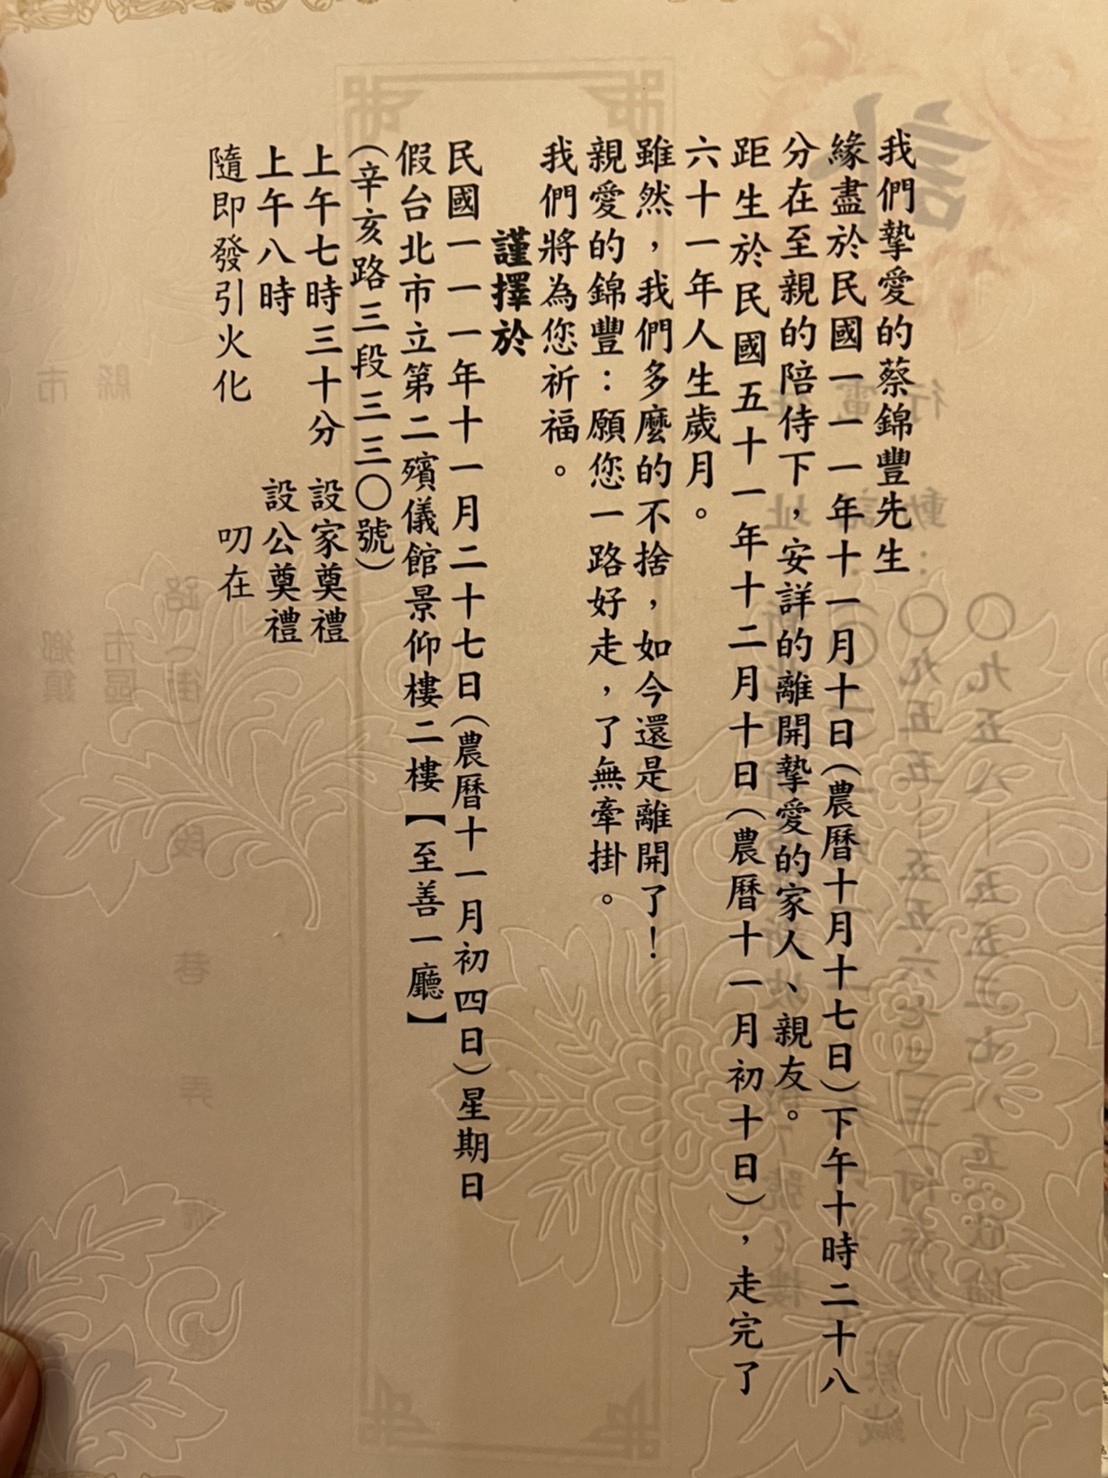 我們摯愛的蔡錦豐先生
緣盡於民國一一一年十一月十日(農曆十月十七日)下午十時二十八
分在至親的陪侍下，安詳的離開摯愛的家人、親友。
距生於民國五十一年十二月十日(農曆十一月初十日)，走完了
六十一年人生歲月。
雖然，我們多麼的不捨，如今還是離開了！
親愛的錦豐：願您一路好走，了無牽掛。
我們將為您祈福。
謹擇於
民國一一一年十一月二十七日(農曆十一月初四日)星期日
假台北市立第二殯儀館景仰樓二樓【至善一廳】
(辛亥路三段三三○號)
上午七時三十分 設家奠禮
上午八時 設公奠禮
隨即發引火化 叨在
訃